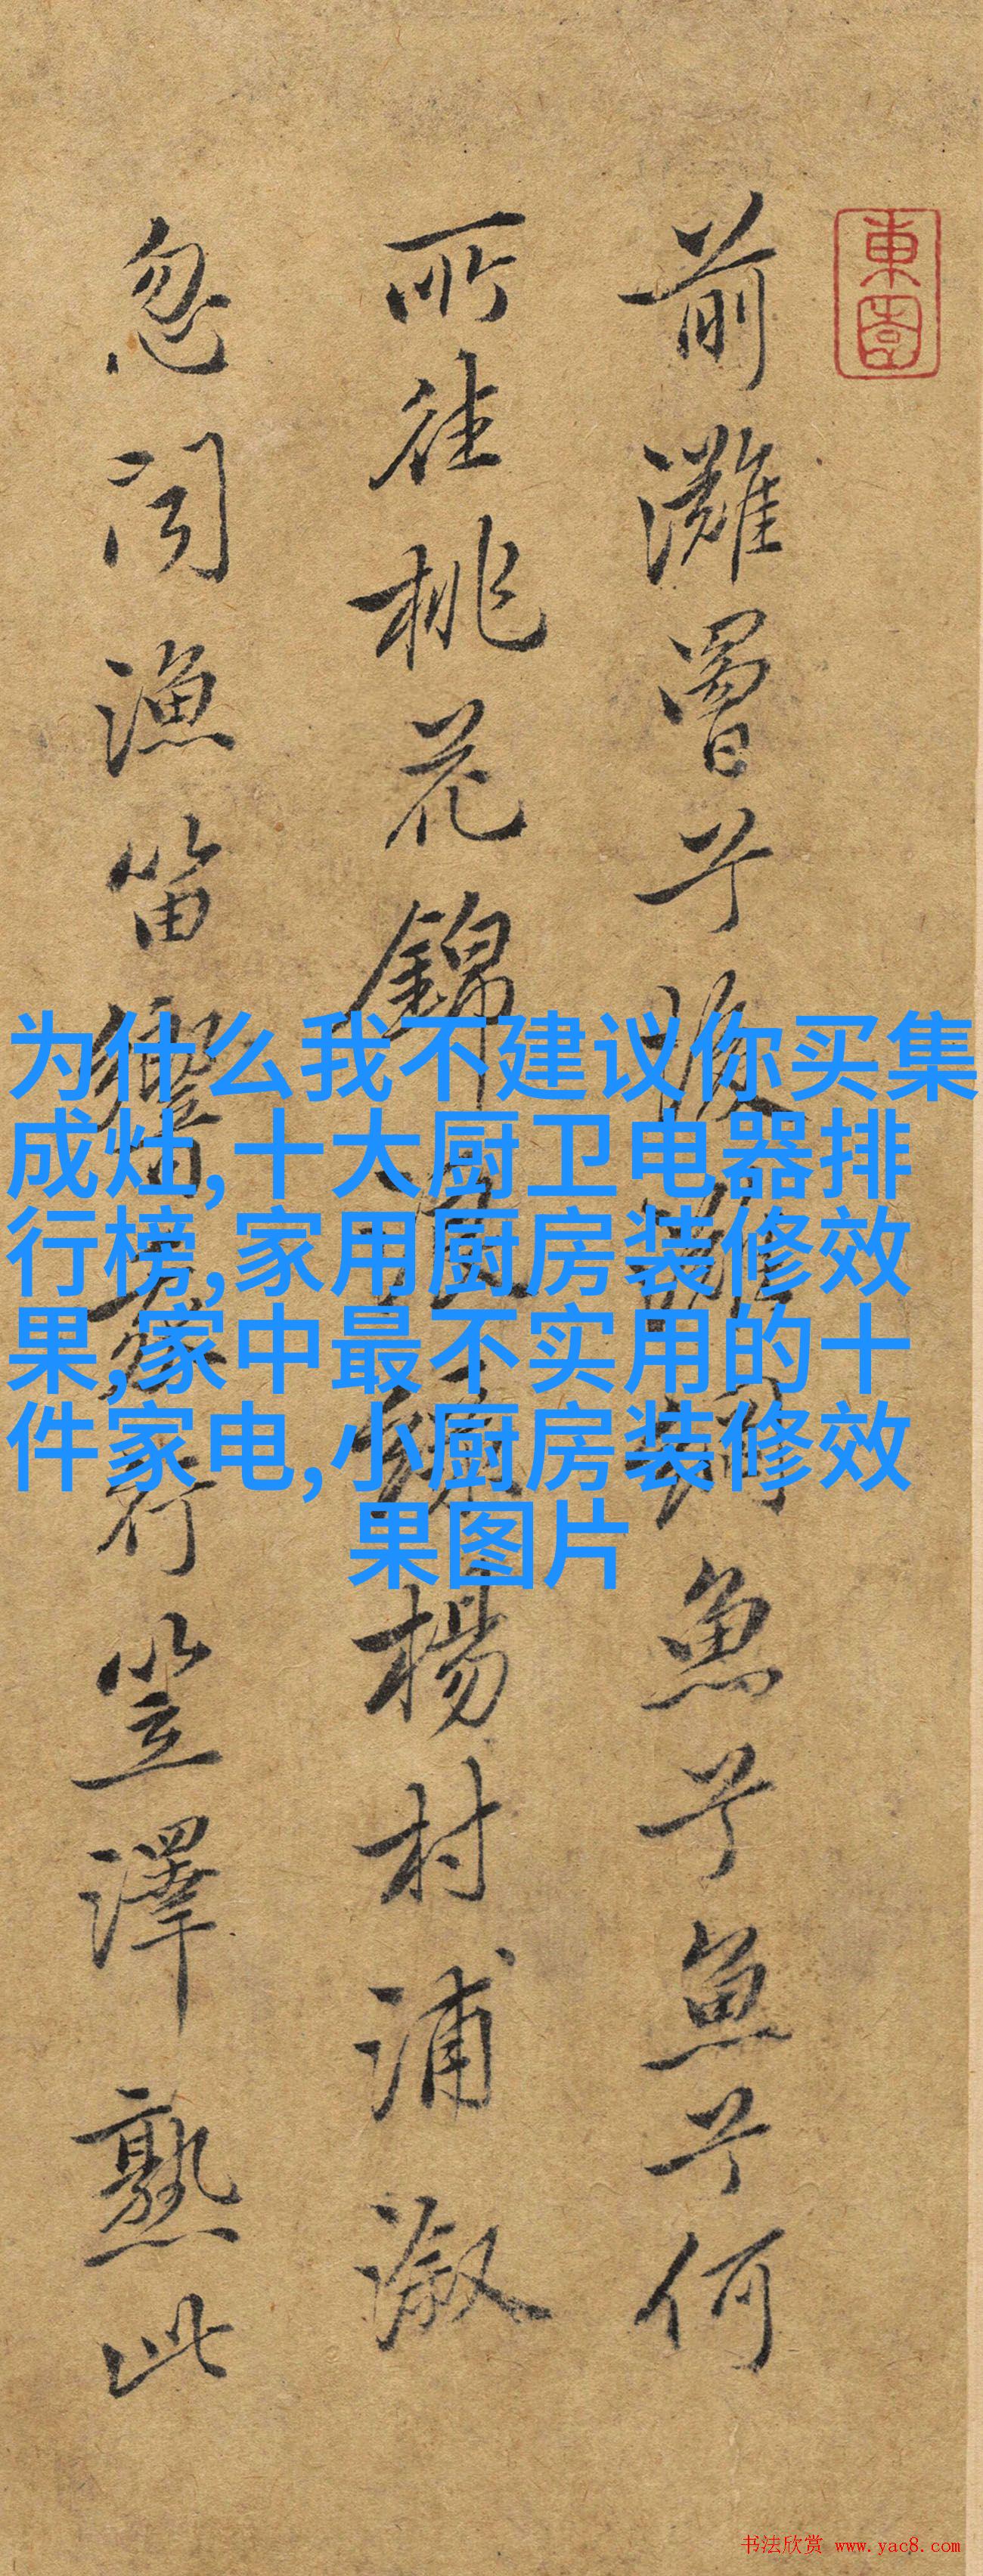 東園
前灘罾兮後灘網魚兮魚兮何
所往桃花錦浪綠楊村浦漵
忽聞漁笛響我行笠澤熟此
为什么我不建议你买集
成灶,十大厨卫电器排
行榜,家用厨房装修效
果,家中最不实用的十
件家电,小厨房装修效
果图片
书法欣赏 www.yac8.com